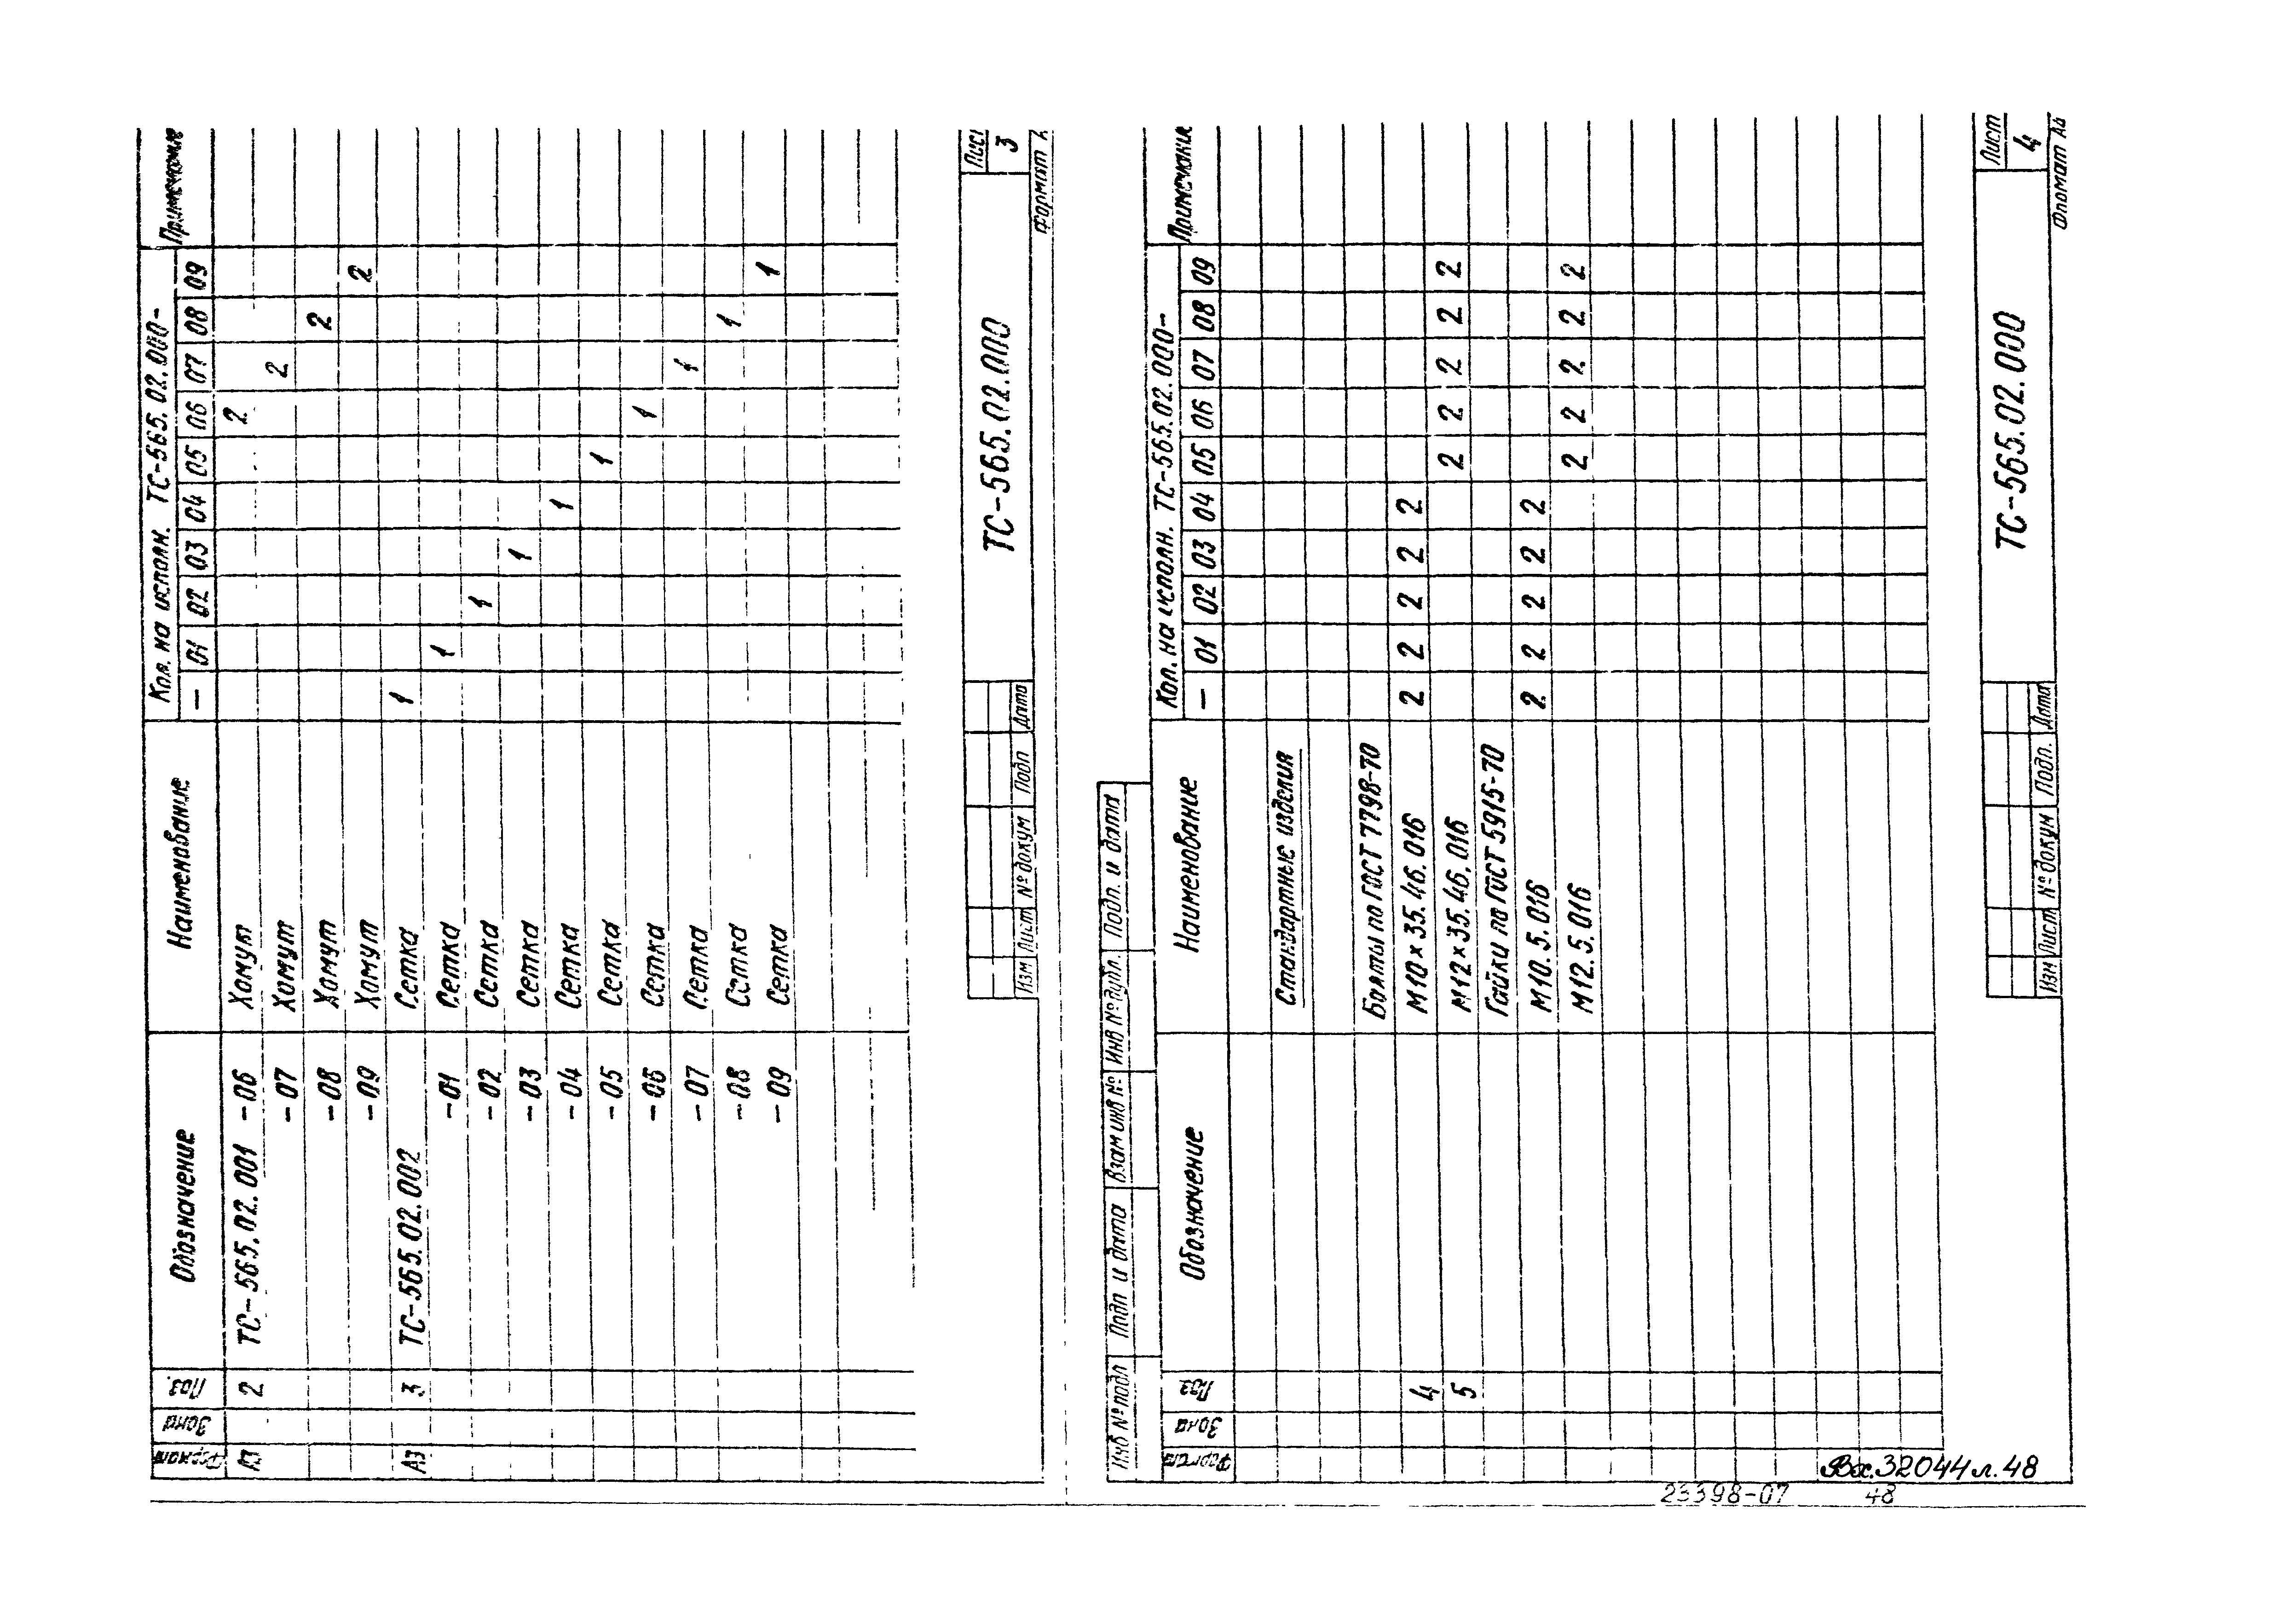 Формат Зона Поз. Обозначение Наименование Кол. на исполн. ТС-565.02.000- Примечание
— 01 02 03 04 05 06 07 08 09
А3 2 ТС-565.02.001 -06 Хомут 2
-07 Хомут 2
-08 Хомут 2
-09 Хомут 2
А3 3 ТС-565.02.002 Сетка 1
-01 Сетка 1
-02 Сетка 1
-03 Сетка 1
-04 Сетка 1
-05 Сетка 1
-06 Сетка 1
-07 Сетка 1
-08 Сетка 1
-09 Сетка 1
ТС-565.02.000
Лист
3
Изм Лист № докум Подп Дата
Формат
Инв № подл Подп и дата Взам инв № Инв № дубл. Подп. и дата
Формат Зона Поз Обозначение Наименование Кол. на исполн. ТС-565.02.000- Примечание
— 01 02 03 04 05 06 07 08 09
Стандартные изделия
Болты по ГОСТ 7798-70
4 М10×35.46.016 2 2 2 2 2
5 М12×35.46.016 2 2 2 2 2
Гайки по ГОСТ 5915-70
М10.5.016 2 2 2 2 2
М12.5.016 2 2 2 2 2
ТС-565.02.000
Лист
4
Изм Лист № докум Подп. Дата
Формат А4
32044 л. 48
23398-07 48